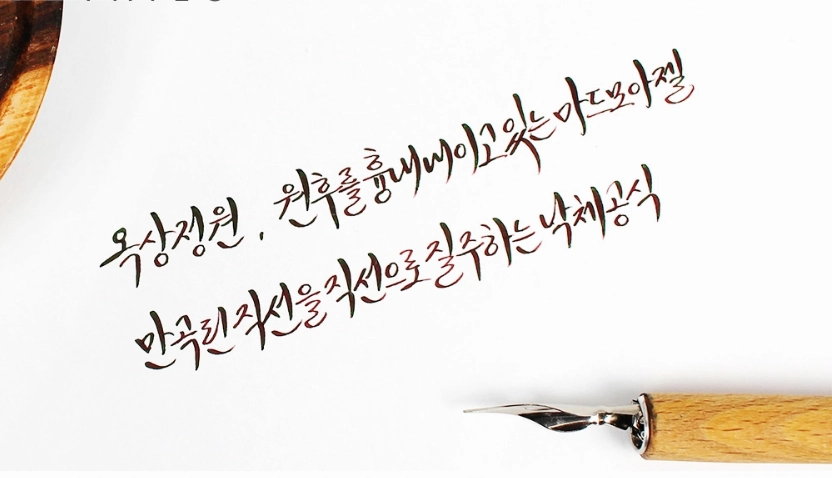 옥상정원, 원후를흉내내이고있는마드모아젤
만곡된직선을직선으로질주하는낙체공식